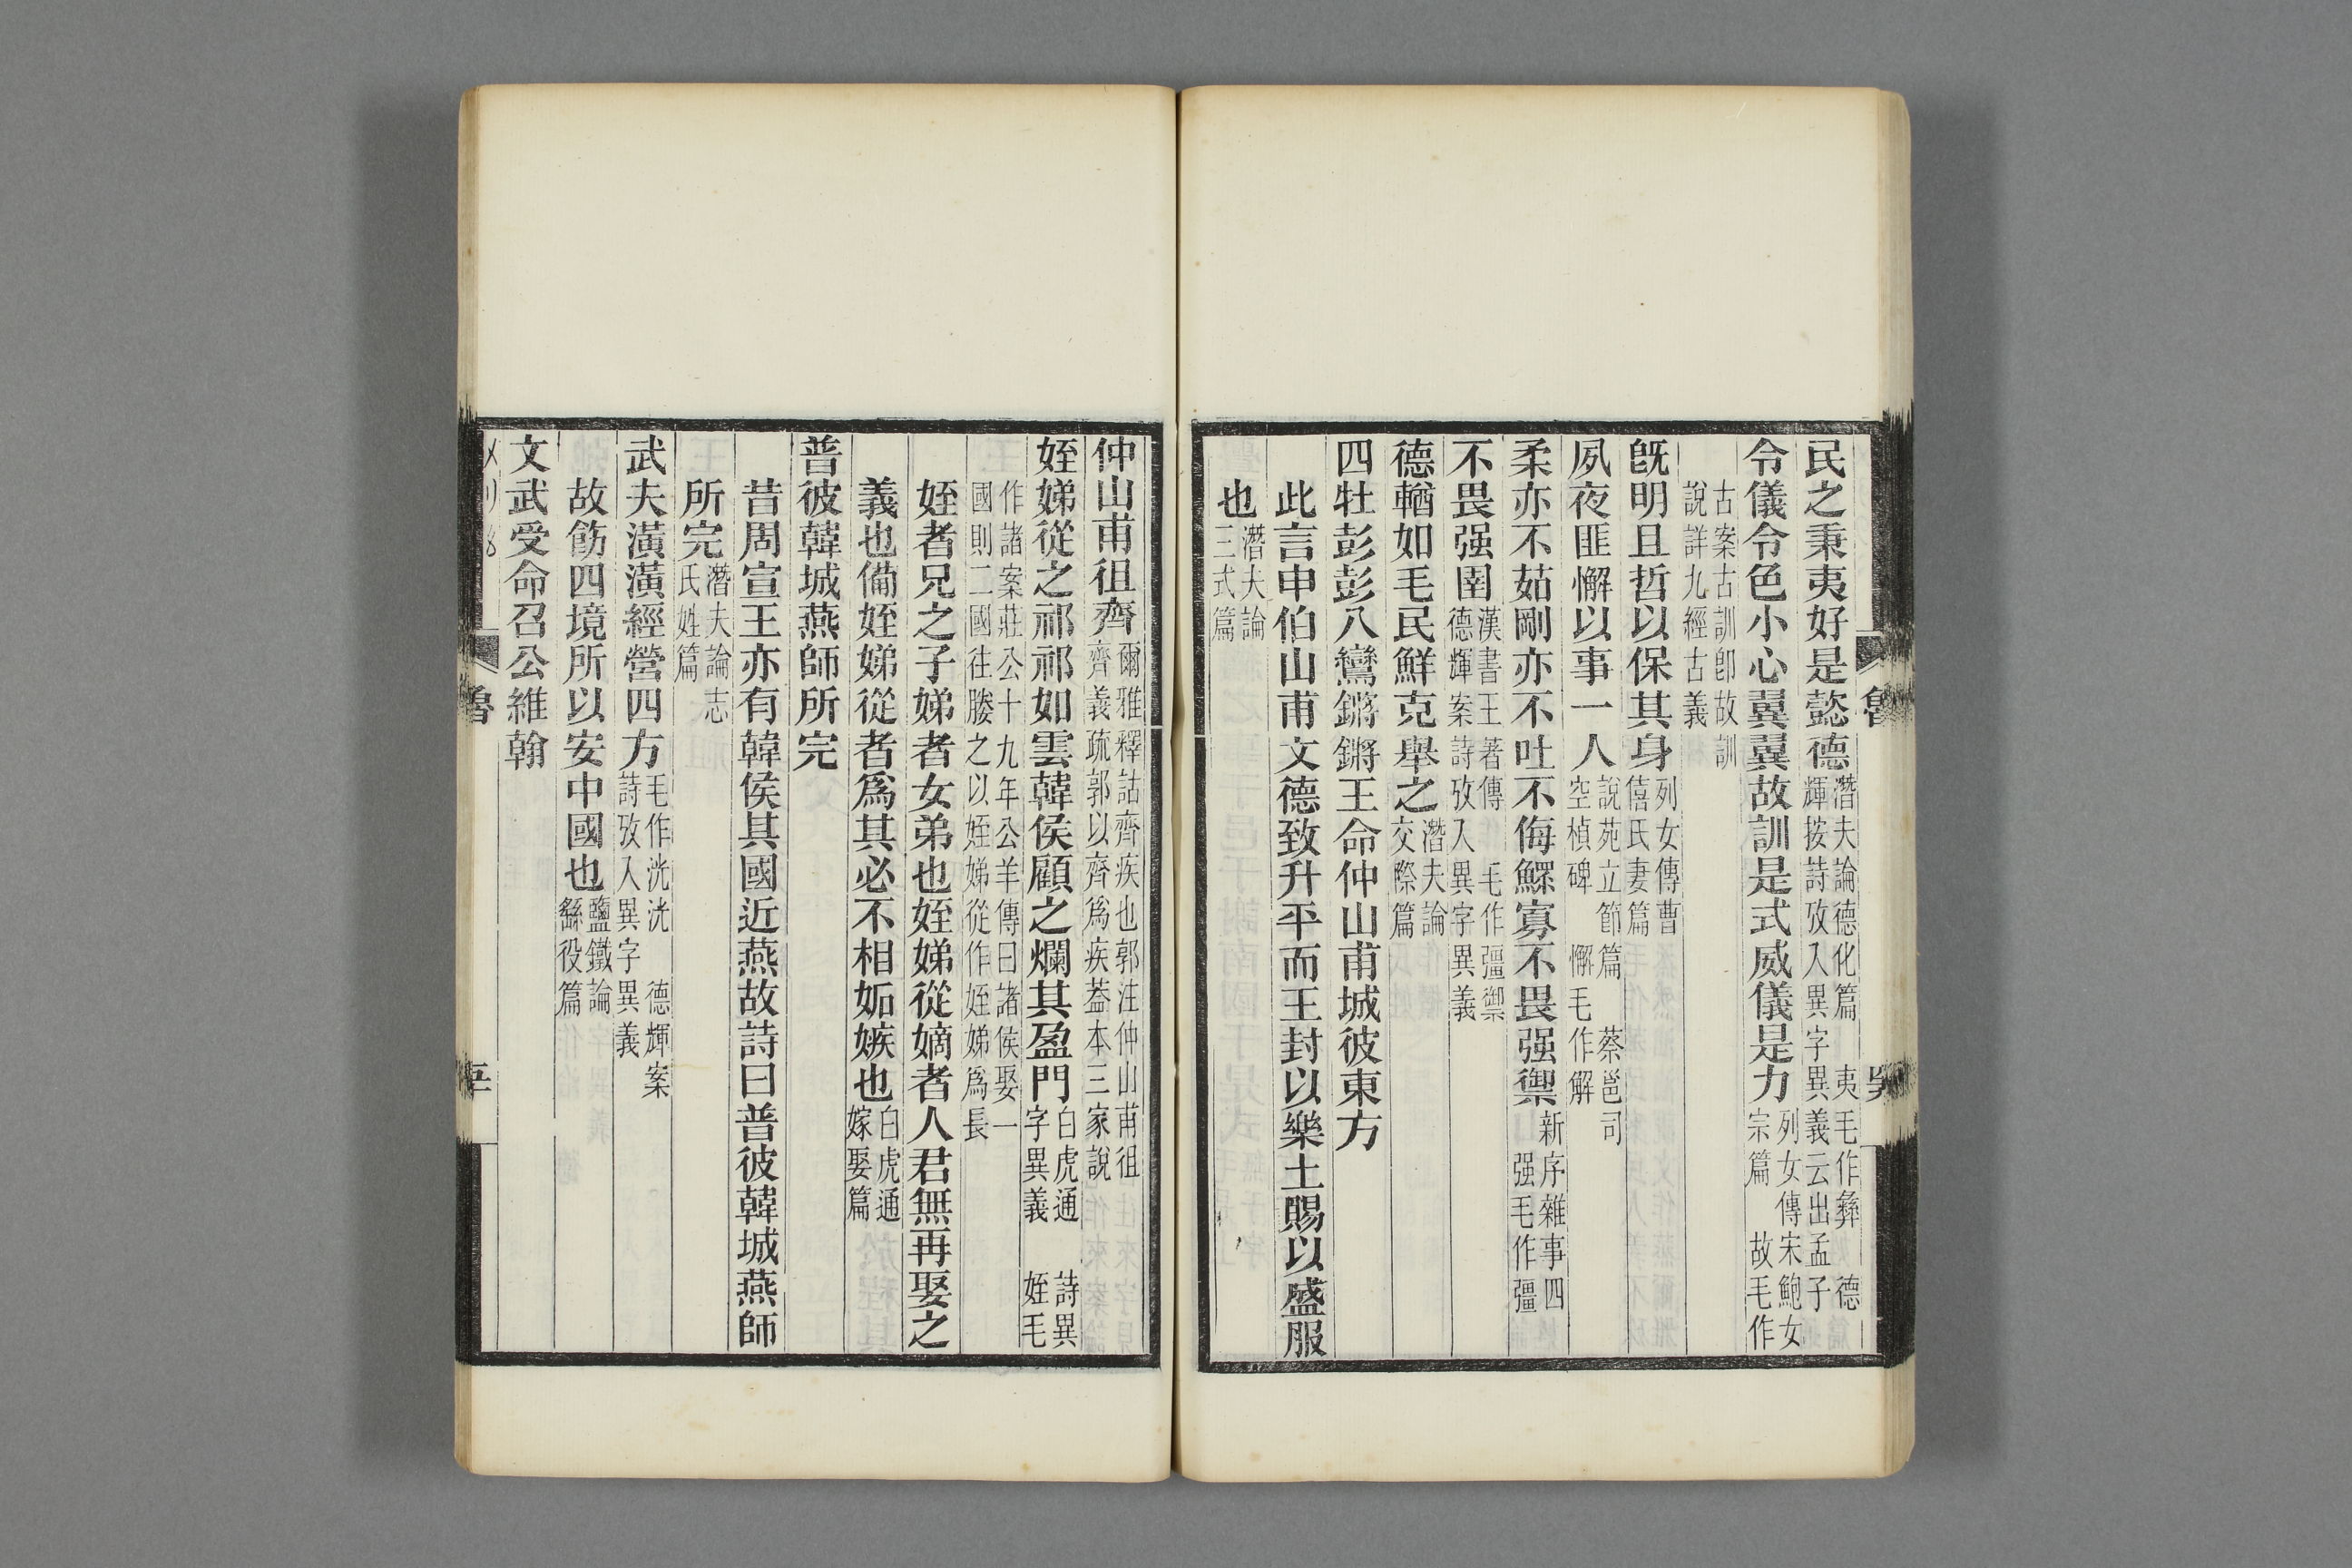 民之秉夷好是懿德潛夫論德化篇 夷毛作彝 德輝按詩攷入異字異義云出孟子
令儀令色小心翼翼故訓是式威儀是力列女傳宋鮑女宗篇 故毛作
古案古訓卽故訓說詳九經古義
旣明且哲以保其身列女傳曹僖氏妻篇
夙夜匪懈以事一人說苑立節篇 蔡邕司空楨碑 懈毛作解
柔亦不茹剛亦不吐不侮鰥寡不畏强禦新序雜事四 强毛作彊
不畏强圉漢書王莽傳 毛作彊禦 德輝案詩攷入異字異義
德輶如毛民鮮克舉之潛夫論交際篇
四牡彭彭八鸞鏘鏘王命仲山甫城彼東方
此言申伯山甫文德致升平而王封以樂土賜以盛服
也潛夫論三式篇
魯
仲山甫徂齊爾雅釋詁齊疾也郭注仲山甫徂齊義疏郭以齊爲疾蓋本三家說
姪娣從之祁祁如雲韓侯顧之爛其盈門白虎通 詩異字異義 姪毛
作諸案莊公十九年公羊傳曰諸侯娶一國則二國往媵之以姪娣從作姪娣爲長
姪者兄之子娣者女弟也姪娣從嫡者人君無再娶之
義也備姪娣從者爲其必不相妬嫉也白虎通嫁娶篇
普彼韓城燕師所完
昔周宣王亦有韓侯其國近燕故詩曰普彼韓城燕師
所完潛夫論志氏姓篇
武夫潢潢經營四方毛作洸洸 德輝案詩攷入異字異義
故飭四境所以安中國也鹽鐵論繇役篇
文武受命召公維翰
魯